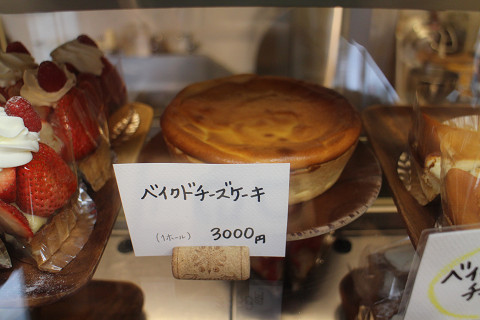 ベイクドチーズケーキ
(1ホール) 3000円
ベイ
チ